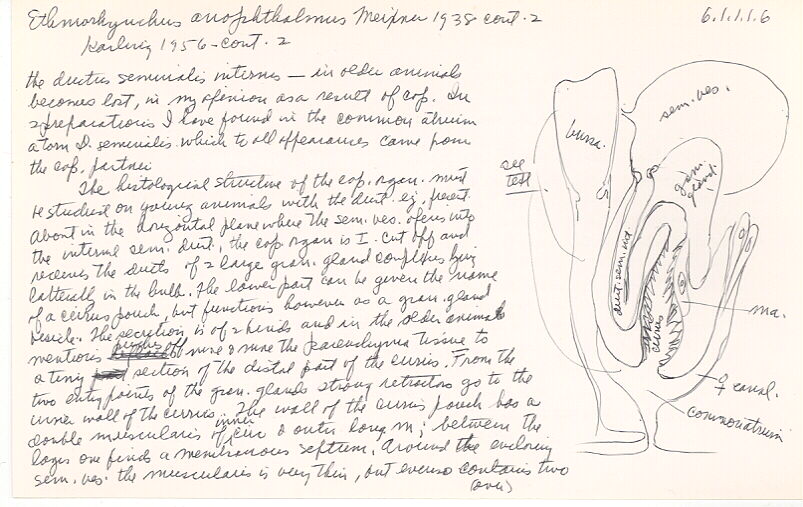 Ethmorhynchus anophthalmus Meixner 1938 cont. 2
6.1.1.1.6
Karling 1956 - cont. 2
the ductus seminialis internus — in older animals
becomes lost, in my opinion as a result of cop. In
2 preparations I have found in the common atrium
a torn D. seminialis which to all appearances came from
the cop. partner
The histological structure of the cop. organ must
be studied on young animals with the duct. ej. pres.
About in the horizontal plane where the sem. ves. opens into
the internal sem. duct, the cop organ is I. cut off and
receives the ducts of 2 large gran. gland complexes lying
latterally in the bulb. The lower part can be given the name
of a cirrus pouch, but functions however as a gran. gland
vesicle. The secretion is of 2 kinds and in the older animals
mentioned pushes off more & more the parenchyma tissue to
a tiny section of the distal part of the cirrus. From the
two entry points of the gran. glands strong retractors go to the
inner wall of the cirrus. The wall of the cirrus pouch has a
double muscularis of inner circ & outer long m; between the
layers one finds a membranous septum. Around the enclosing
sem. ves. the muscularis is very thin, but even so contains two
(over)
sem. ves.
bursa.
see
text
gran.
gland.
duct. sem. int
cirrus
ma.
♀ canal.
common atrium